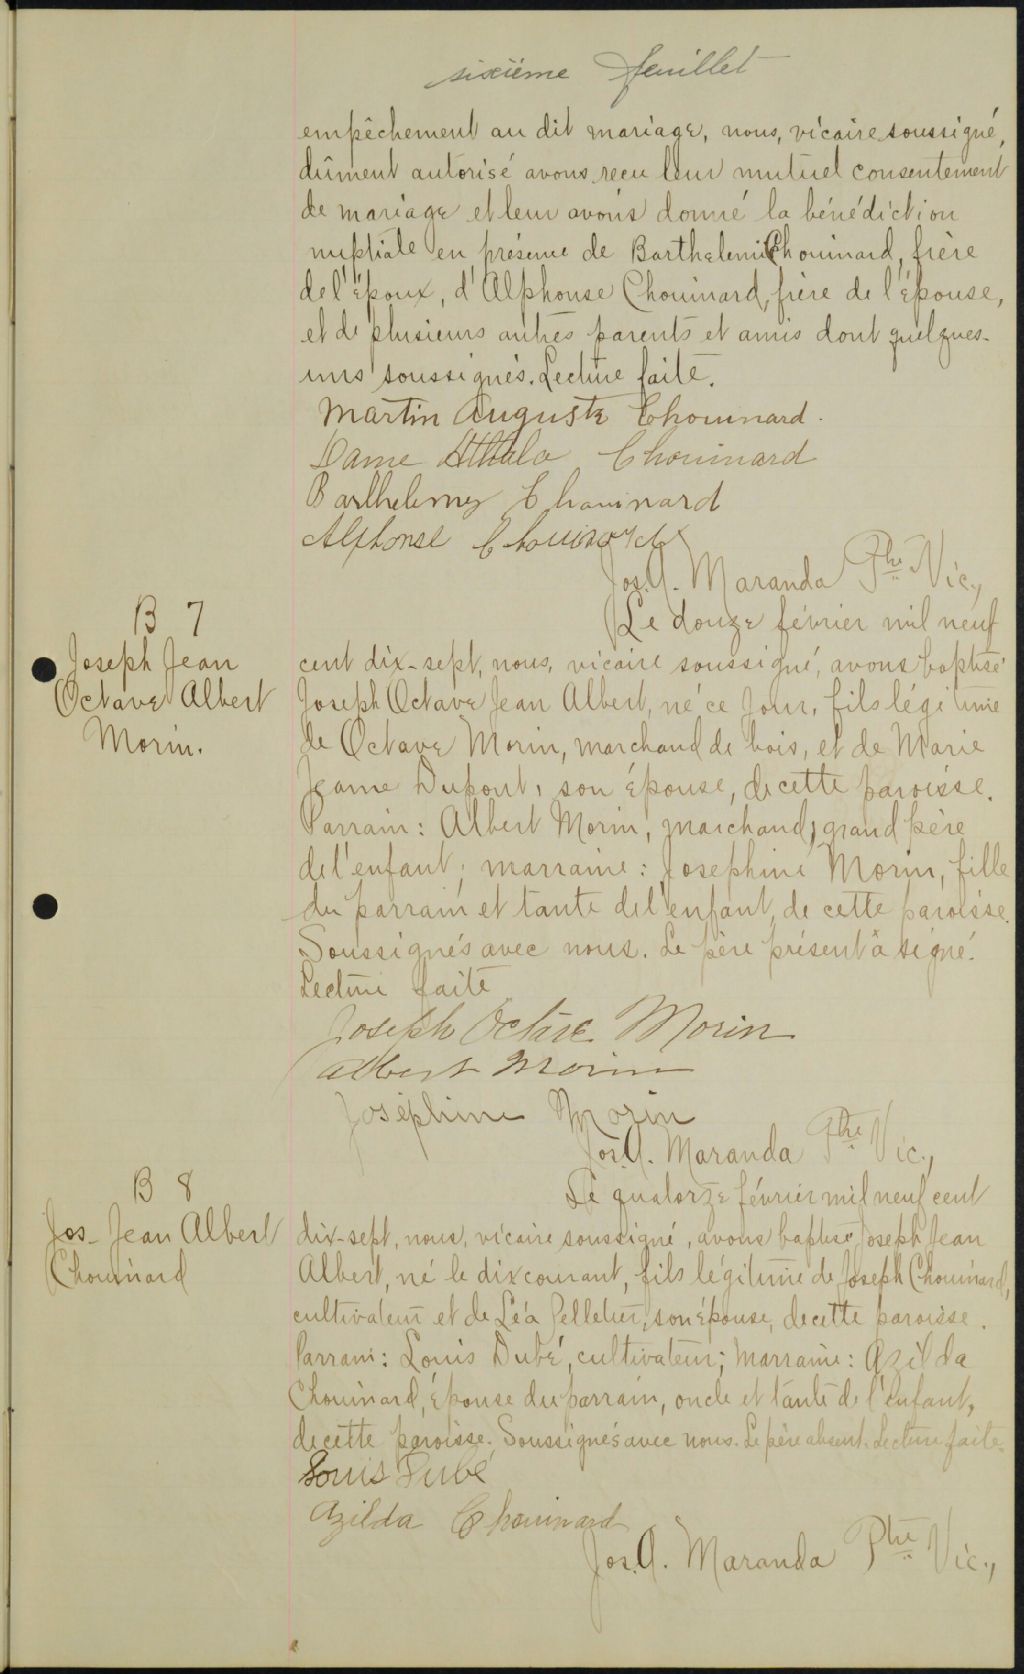 sixième feuillet
empêchement au dit mariage, nous, vicaire soussigné,
dûment autorisé avons reçu leur mutuel consentement
de mariage et leur avons donné la bénédiction
nuptiale en présence de Barthelemi Chouinard, frère
de l'époux, d'Alphonse Chouinard, frère de l'épouse,
et de plusieurs autres parents et amis dont quelques-
uns soussignés. Lecture faite.
Martin Auguste Chouinard.
Dame Athala Chouinard
Barthelemy Chouinard
Alphonse Chouinard
Jos. A. Maranda Ptre Vic.,
B 7
Joseph Jean
Octave Albert
Morin.
Le douze février mil neuf
cent dix-sept, nous, vicaire soussigné, avons baptisé
Joseph Octave Jean Albert, né ce jour, fils légitime
de Octave Morin, marchand de bois, et de Marie
Jeanne Dupont, son épouse, de cette paroisse.
Parrain: Albert Morin, marchand, grand père
de l'enfant; marraine: Josephine Morin, fille
du parrain et tante de l'enfant, de cette paroisse.
Soussignés avec nous. Le père présent a signé.
Lecture faite
Joseph Octave Morin
Albert Morin
Joséphine Morin
Jos. A. Maranda Ptre Vic.,
B 8
Jos- Jean Albert
Chouinard
Le quatorze février mil neuf cent
dix-sept, nous, vicaire soussigné, avons baptisé Joseph Jean
Albert, né le dix courant, fils légitime de Joseph Chouinard,
cultivateur et de Léa Pelletier, son épouse, de cette paroisse.
Parrain: Louis Dubé, cultivateur; Marraine: Azilda
Chouinard, épouse du parrain, oncle et tante de l'enfant,
de cette paroisse. Soussignés avec nous. Le père absent. Lecture faite.
Louis Dubé
Azilda Chouinard
Jos. A. Maranda Ptre Vic.,